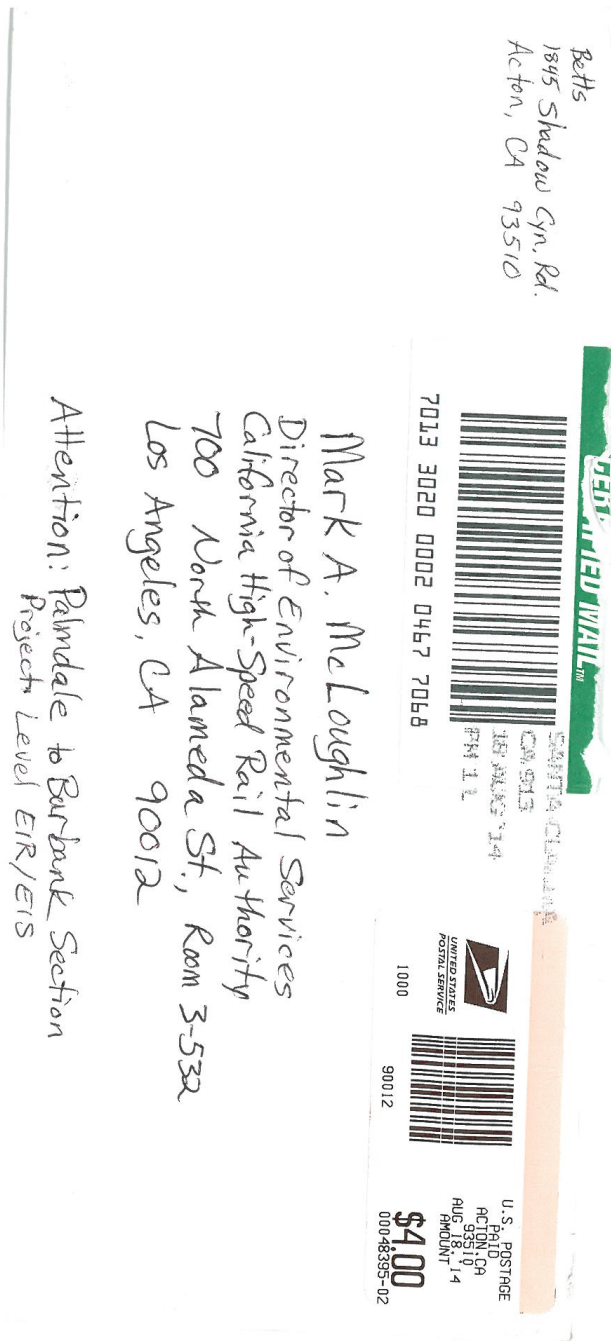 Betts
1845 Shadow Cyn. Rd.
Acton, CA 93510
CERTIFIED MAIL™
7013 3020 0002 0467 7068
SANTA CLARITA
CA 913
18 AUG '14
PM 1 L
UNITED STATES
POSTAL SERVICE
1000
90012
U.S. POSTAGE
PAID
ACTON, CA
93510
AUG 18, '14
AMOUNT
$4.00
00048395-02
Mark A. McLoughlin
Director of Environmental Services
California High-Speed Rail Authority
700 North Alameda St., Room 3-532
Los Angeles, CA 90012
Attention: Palmdale to Burbank Section
Project Level EIR/EIS